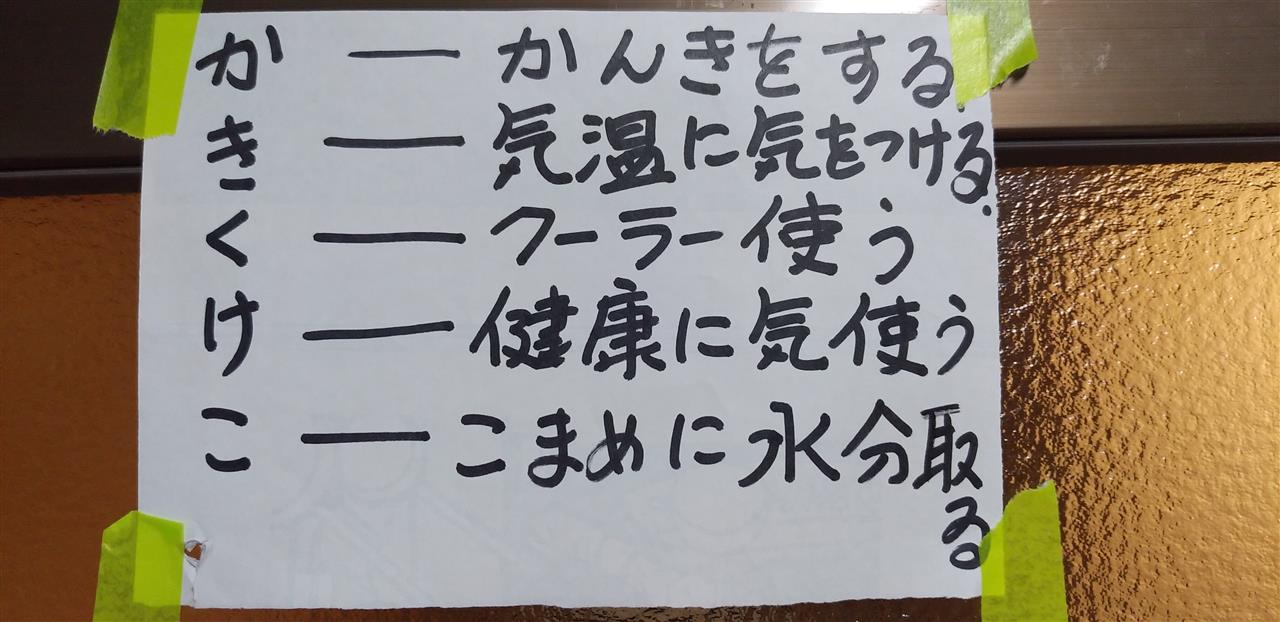 か ― かんきをする
き ― 気温に気をつける.
く ― クーラー使う
け ― 健康に気使う
こ ― こまめに水分取
る